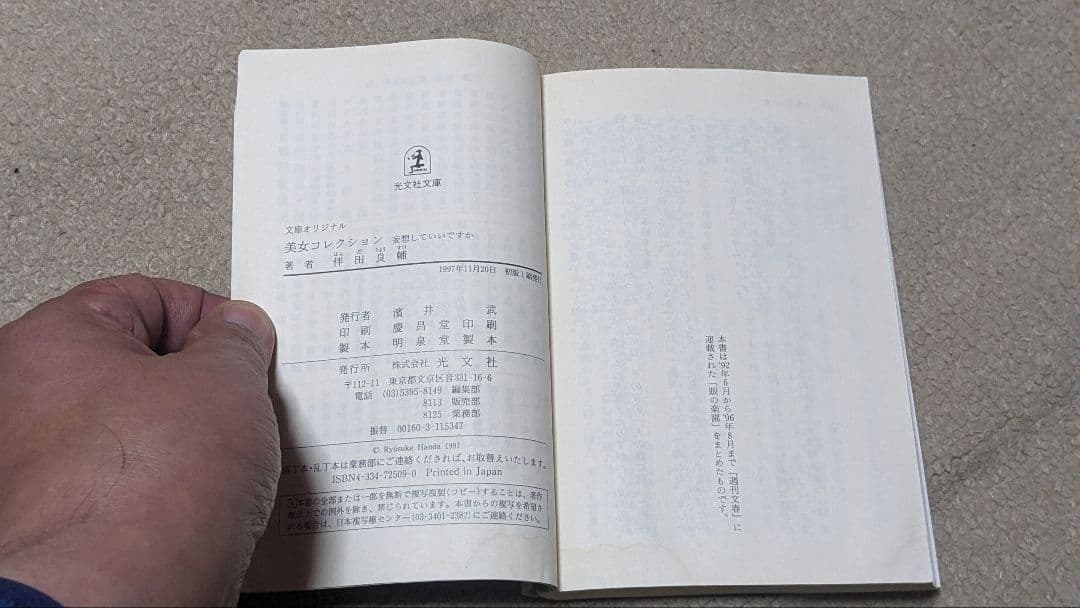 光文社文庫
文庫オリジナル
美女コレクション 妄想していいですか
著者 伴田良輔
1997年11月20日 初版1刷発行
発行者 濱井武
印刷 慶昌堂印刷
製本 明泉堂製本
発行所 株式会社 光文社
〒112-11 東京都文京区音羽1-16-6
電話 (03)5395-8149 編集部
8113 販売部
8125 業務部
振替 00160-3-115347
© Ryōsuke Handa 1997
落丁本・乱丁本は業務部にご連絡くだされば、お取替えいたします。
ISBN4-334-72509-0 Printed in Japan
本書の全部または一部を無断で複写複製(コピー)することは、著作
権法上での例外を除き、禁じられています。本書からの複写を希望さ
れる場合は、日本複写権センター(03-3401-2382)にご連絡ください。
本書は'92年6月から'96年8月まで「週刊文春」に
連載された「眼の楽園」をまとめたものです。